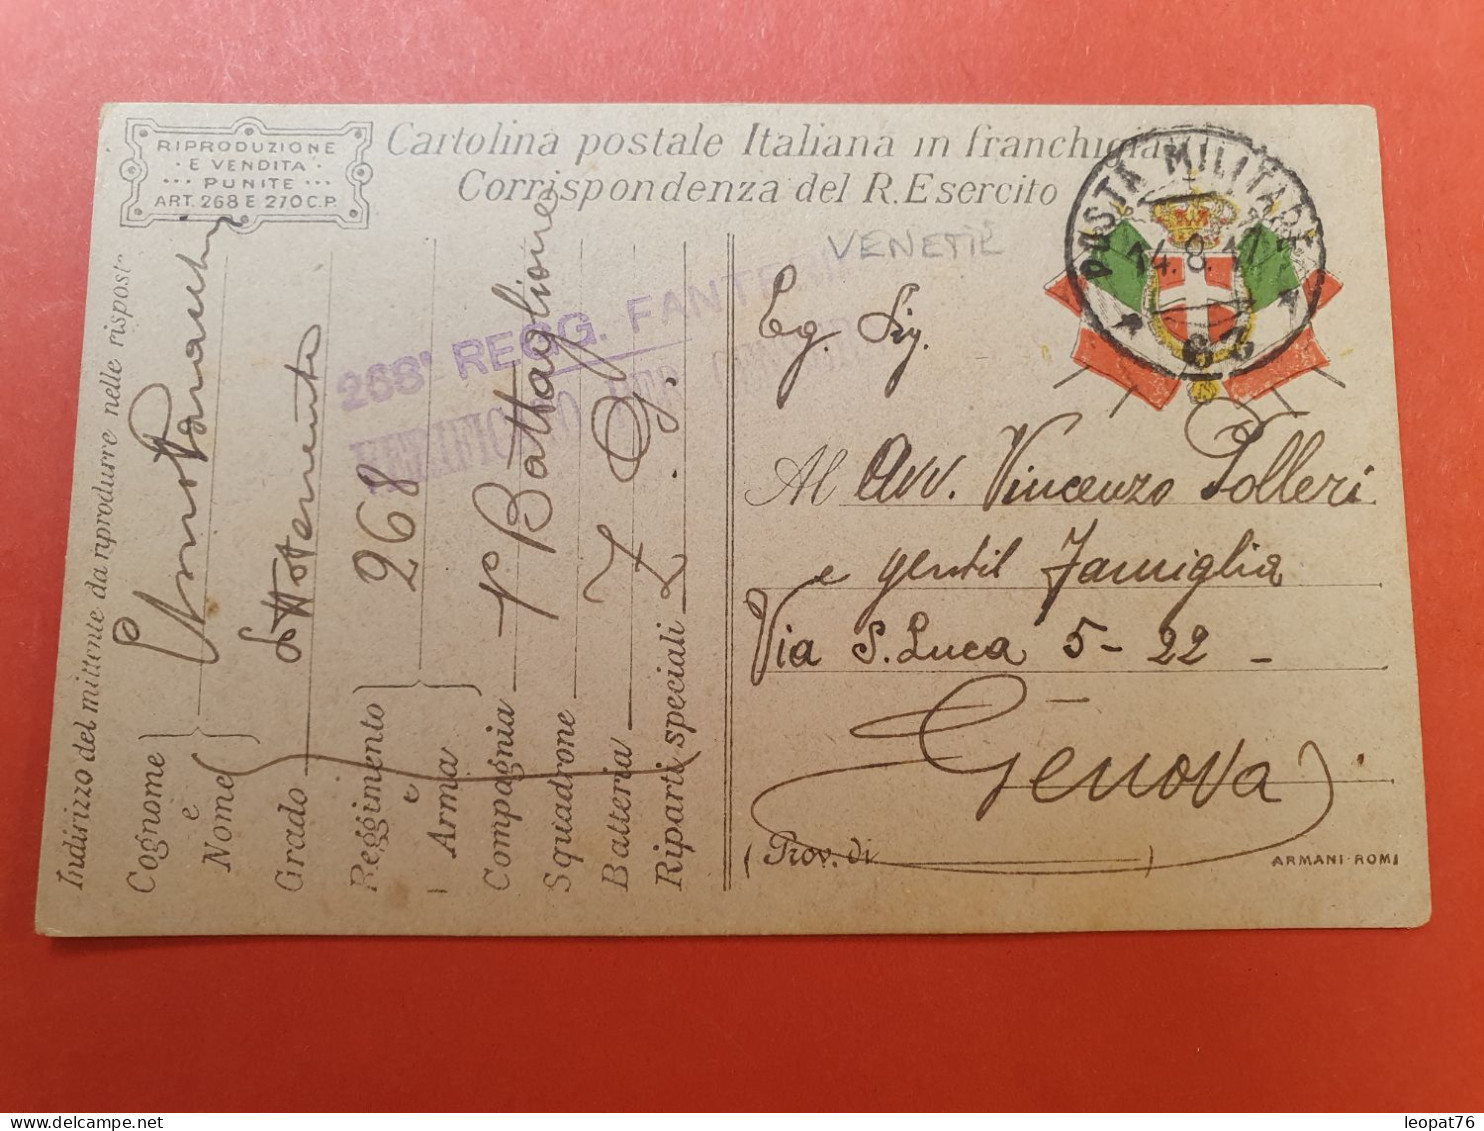 RIPRODUZIONE
E VENDITA
PUNITE
ART. 268 E 270 C.P.
Cartolina postale Italiana in franchigia
Corrispondenza del R. Esercito
VENETI
POSTA MILITARE
14.8.17
63
Indirizzo del mittente da riprodurre nelle rispost"
Cognome
e
Nome
Grado Sottotenente
Reggimento 268
e
Arma
Compagnia 1° Battaglione
Squadrone
Batteria Z
Riparti speciali Z
268° REGG. FANTE
VERIFICATO PER
Eg. Sig.
Al Avv. Vincenzo Polleri
e gentil Famiglia
Via S. Luca 5 - 22 -
Genova
(Prov. di )
ARMANI-ROMA
leopat76